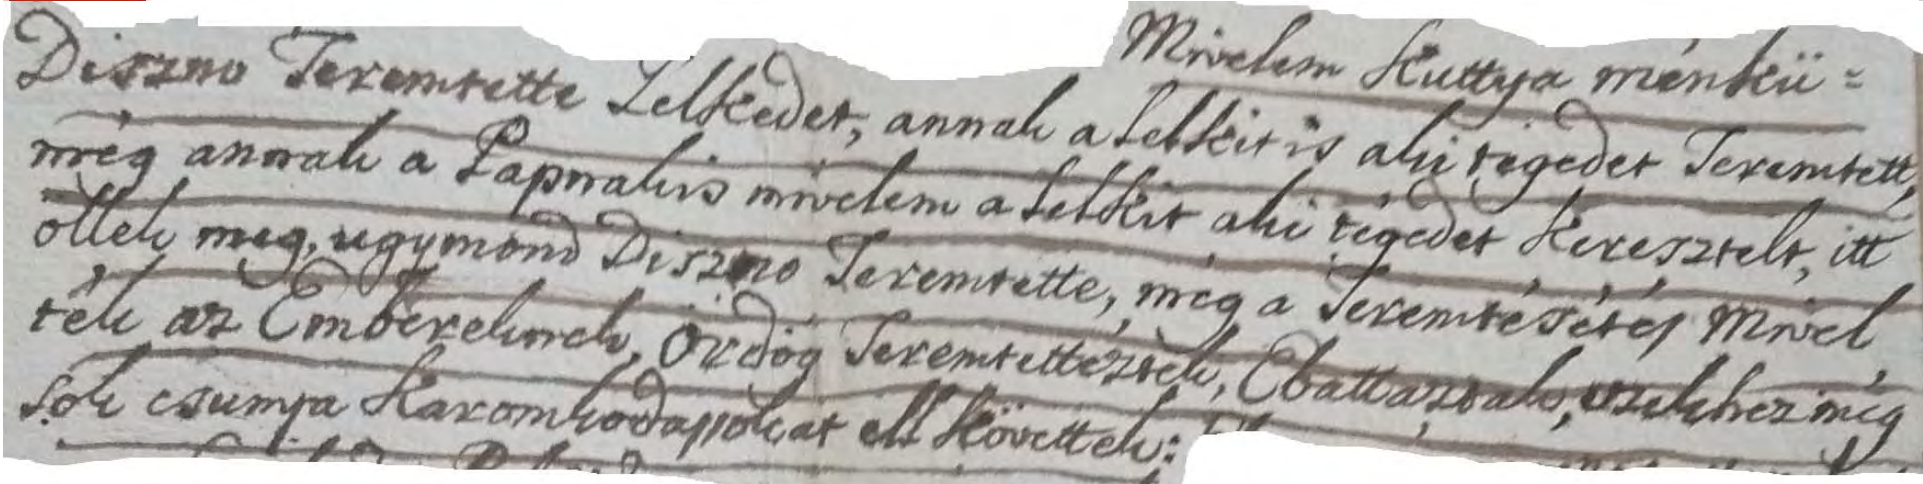 Mivelem Kuttya ménkü =
Diszno Teremtette Lelkedet, annak a Lelkit is aki tégedet Teremtett,
még annak a Papnakis mivelem a Lelkit aki tégedet Keresztelt, itt
öllek meg, ugymond Diszno Teremtette, még a Teremtésétes Mivel
ték az Embereknek, Ördög Teremtettézték, Ebattazták, ezekhez még
sok csunya Karomkodásokat ell követtek: